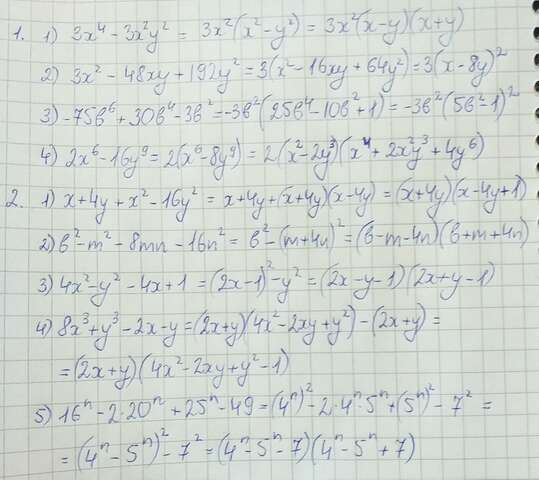 1. 1) 3x⁴ - 3x²y² = 3x²(x² - y²) = 3x²(x-y)(x+y)
2) 3x² - 48xy + 192y² = 3(x² - 16xy + 64y²) = 3(x - 8y)²
3) -75b⁶ + 30b⁴ - 3b² = -3b²(25b⁴ - 10b² + 1) = -3b²(5b² - 1)²
4) 2x⁶ - 16y⁹ = 2(x⁶ - 8y⁹) = 2(x² - 2y³)(x⁴ + 2x²y³ + 4y⁶)
2. 1) x + 4y + x² - 16y² = x + 4y + (x + 4y)(x - 4y) = (x + 4y)(x - 4y + 1)
2) b² - m² - 8mn - 16n² = b² - (m + 4n)² = (b - m - 4n)(b + m + 4n)
3) 4x² - y² - 4x + 1 = (2x - 1)² - y² = (2x - y - 1)(2x + y - 1)
4) 8x³ + y³ - 2x - y = (2x + y)(4x² - 2xy + y²) - (2x + y) =
= (2x + y)(4x² - 2xy + y² - 1)
5) 16ⁿ - 2·20ⁿ + 25ⁿ - 49 = (4ⁿ)² - 2·4ⁿ·5ⁿ + (5ⁿ)² - 7² =
= (4ⁿ - 5ⁿ)² - 7² = (4ⁿ - 5ⁿ - 7)(4ⁿ - 5ⁿ + 7)